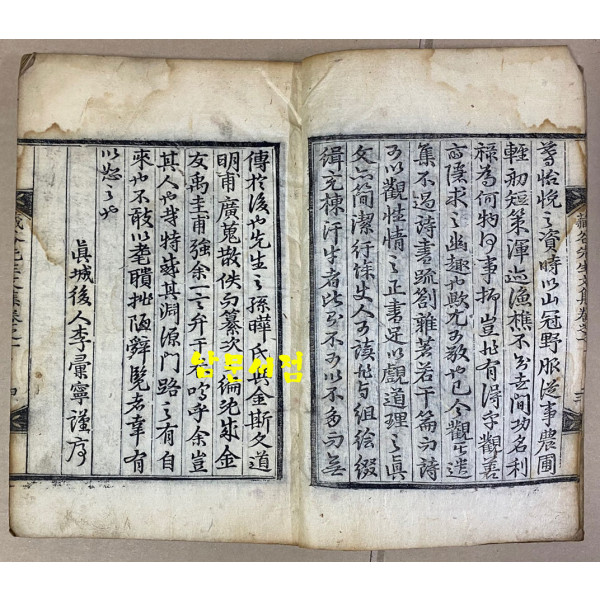 蕁怡悅之資時以山冠野服從事農圃
輕舠短策渾迹漁樵不知世間功名利
祿為何物何事抑豈非有得乎觀善
齋陰求之幽趣也歟尤可敬也已今觀其遺
集不過詩書疏劄雜著若干篇而詩
可以觀性情之正書足以觀道理之眞
文亦簡潔行媃丈人可該非與組繪綴
緝充棟汗牛者比不可以不多而無
傳於後也先生之孫曄氏與金斯文道
明甫廣蒐散佚而纂次之編旣成金
友禹圭甫強余一言弁于卷嗚呼余豈
其人也哉特感其淵源門路之有自
來也不敢以耄聵拙陋辭覽者幸有
以恕之也
眞城後人李彙寧謹序
藏谷先生文集卷之一
三
四
남문서점